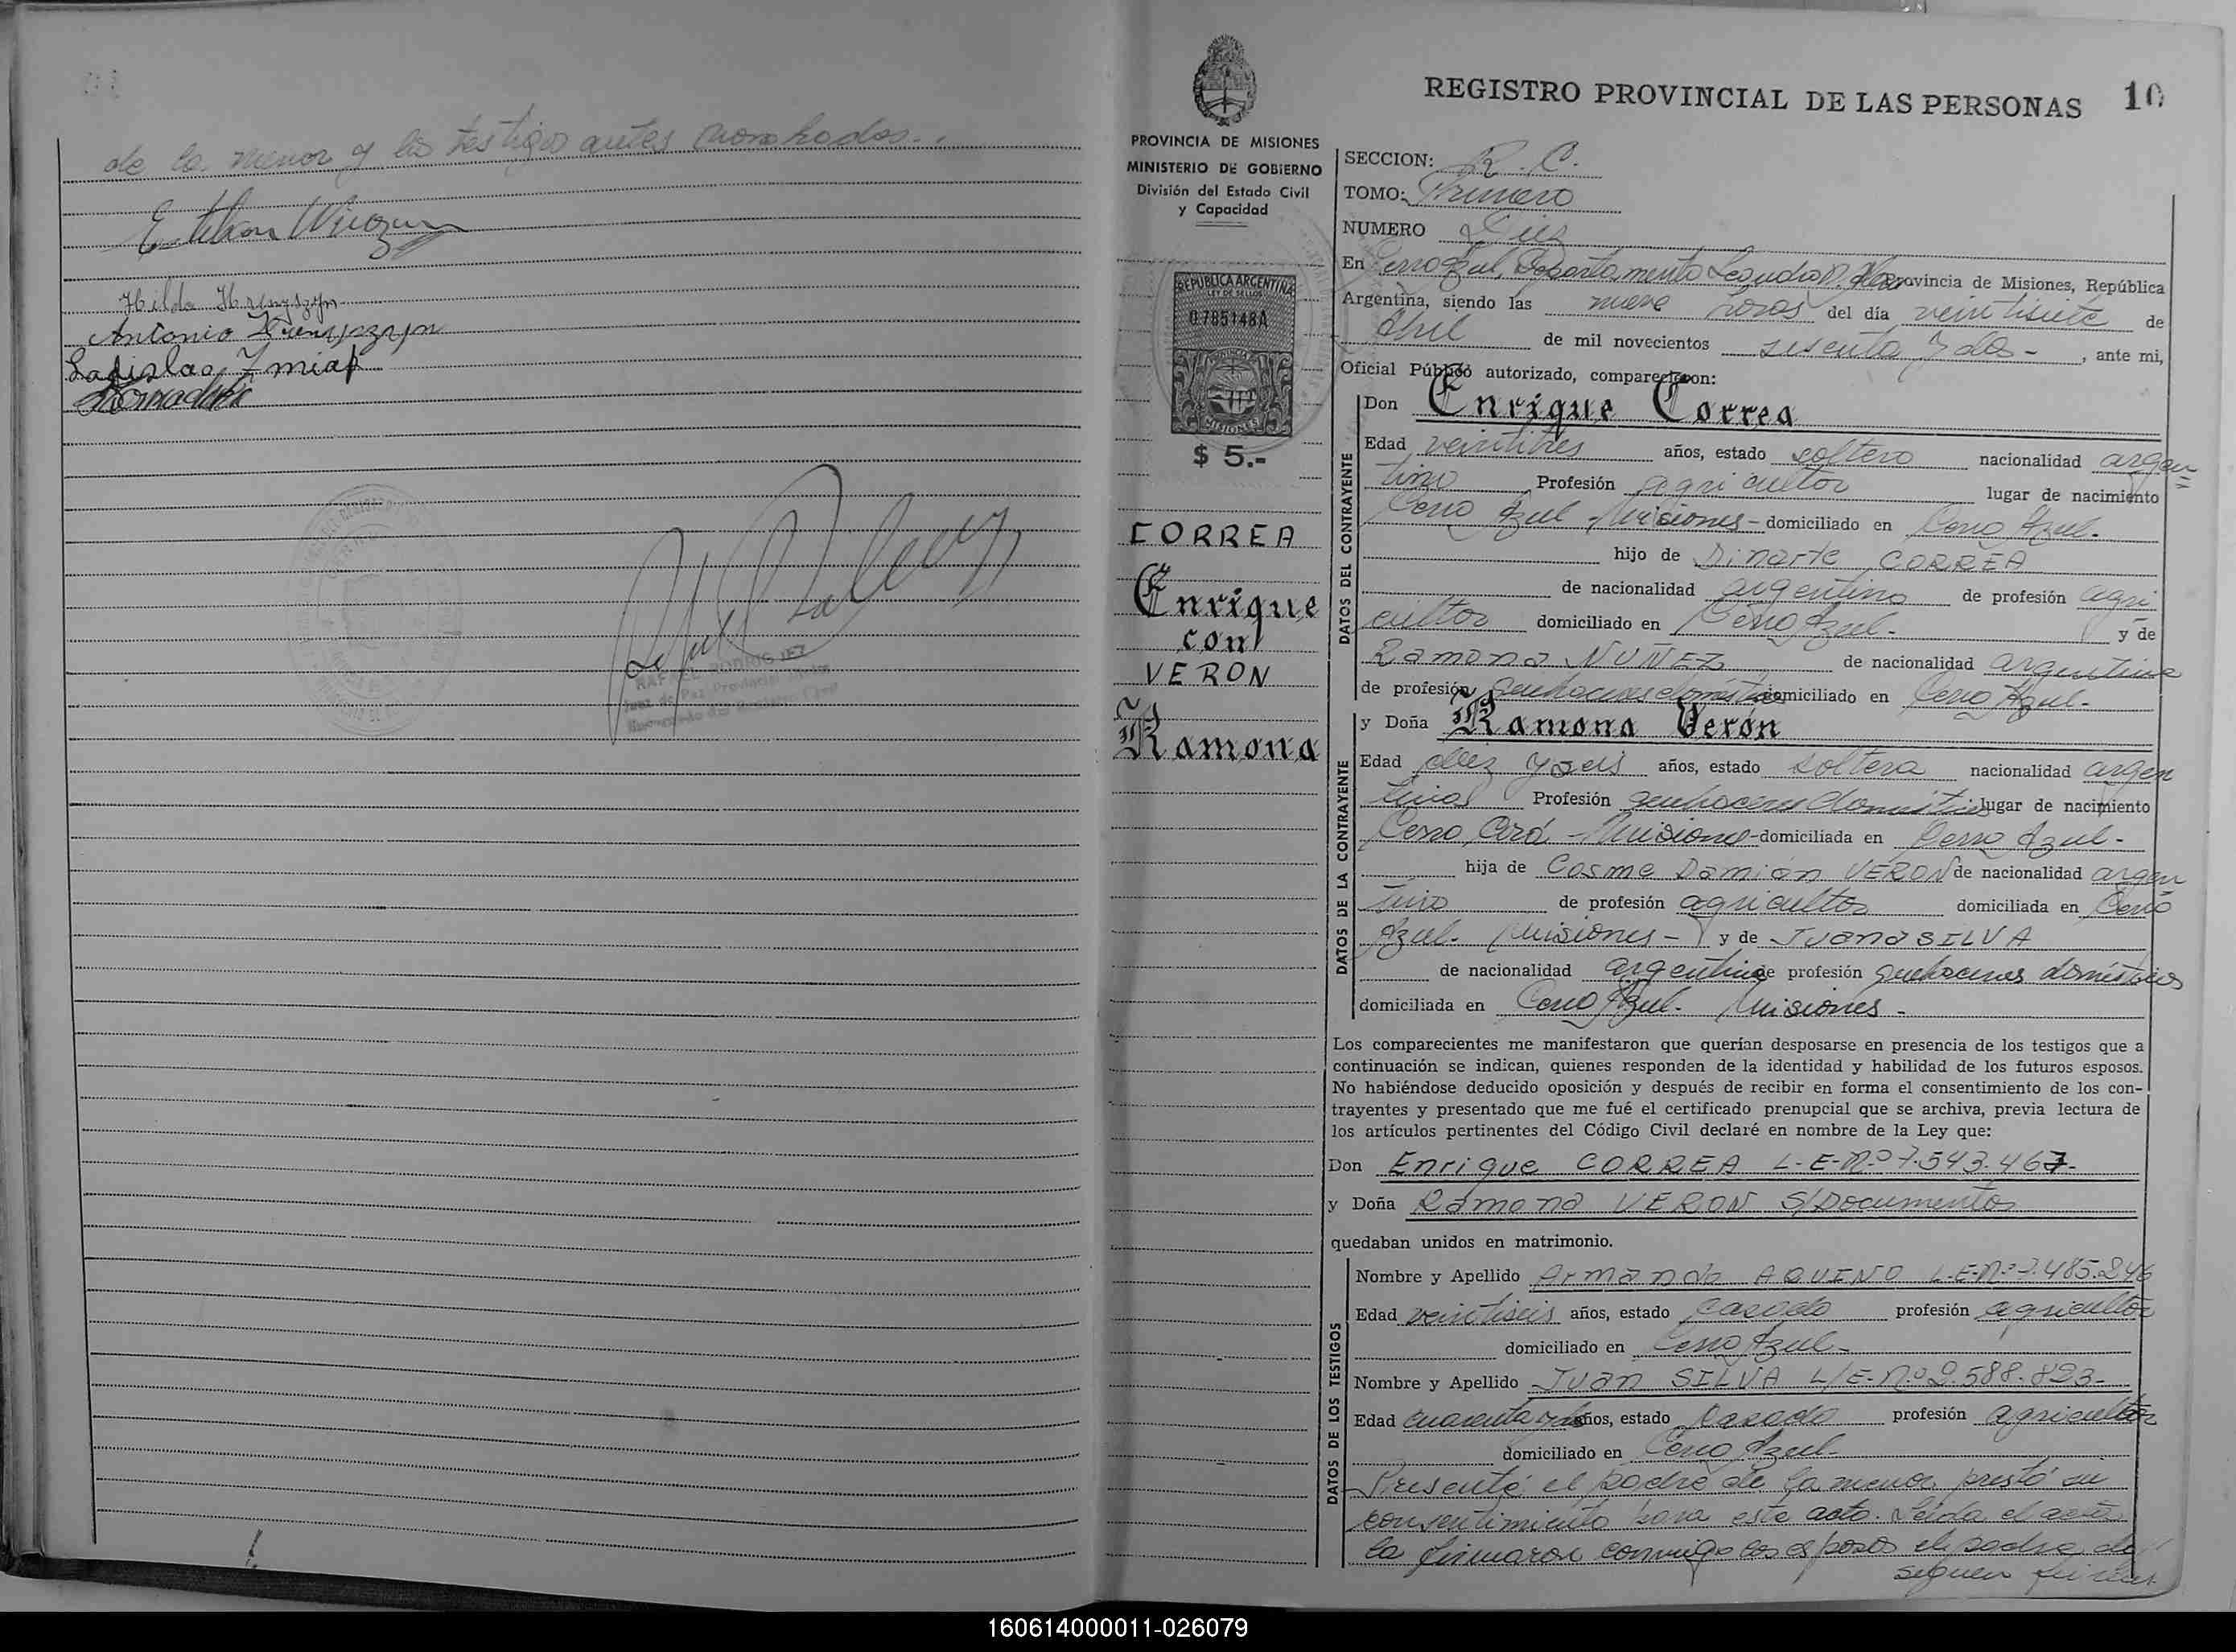 de la menor y los testigos antes nombrados.
Esteban
Hilda Hrenyszyn
Antonio Hrenyszyn
Ladislao Zmiak
RAFAEL RODRIGUEZ
Juez de Paz Provincial
Encargado del Registro Civil
PROVINCIA DE MISIONES
MINISTERIO DE GOBIERNO
División del Estado Civil
y Capacidad
REPUBLICA ARGENTINA
LEY DE SELLOS
0.785148A
PROVINCIA DE
MISIONES
$ 5.-
CORREA
Enrique
con
VERON
Ramona
REGISTRO PROVINCIAL DE LAS PERSONAS 10
SECCION: R. C.
TOMO: Primero
NUMERO Diez
En Cerro Azul, Departamento Leandro N. Alem Provincia de Misiones, República
Argentina, siendo las nueve horas del día veintisiete de
Abril de mil novecientos sesenta y dos - , ante mi,
Oficial Público autorizado, comparecieron:
DATOS DEL CONTRAYENTE
Don Enrique Correa
Edad veintitres años, estado soltero nacionalidad argen=
tino Profesión agricultor lugar de nacimiento
Cerro Azul - Misiones - domiciliado en Cerro Azul.
hijo de Dinarte CORREA
de nacionalidad argentino de profesión agri
cultor domiciliado en Cerro Azul. y de
Ramona NUÑEZ de nacionalidad argentina
de profesión quehaceres domésticos domiciliado en Cerro Azul.
DATOS DE LA CONTRAYENTE
y Doña Ramona Verón
Edad diez y seis años, estado soltera nacionalidad argen
tina Profesión quehaceres domésticos lugar de nacimiento
Cerro Corá - Misiones - domiciliada en Cerro Azul.
hija de Cosme Damián VERON de nacionalidad argen=
tino de profesión agricultor domiciliada en Cerro
Azul. Misiones - y de Juana SILVA
de nacionalidad argentina de profesión quehaceres domésticos
domiciliada en Cerro Azul. Misiones -
Los comparecientes me manifestaron que querían desposarse en presencia de los testigos que a
continuación se indican, quienes responden de la identidad y habilidad de los futuros esposos.
No habiéndose deducido oposición y después de recibir en forma el consentimiento de los con-
trayentes y presentado que me fué el certificado prenupcial que se archiva, previa lectura de
los artículos pertinentes del Código Civil declaré en nombre de la Ley que:
Don Enrique CORREA L-E-Nº 7.543.467-
y Doña Ramona VERON S/Documentos
quedaban unidos en matrimonio.
DATOS DE LOS TESTIGOS
Nombre y Apellido Armando AQUINO L-E-Nº 7.485.246
Edad veintiseis años, estado casado profesión agricultor
domiciliado en Cerro Azul.
Nombre y Apellido Juan SILVA L/E-Nº 2.588.823-
Edad cuarenta y dos años, estado casado profesión agricultor
domiciliado en Cerro Azul.
Presente el padre de la menor prestó su
consentimiento para este acto. Leída el acta
la firmaron conmigo los esposos el padre de
siguen firmas
160614000011-026079